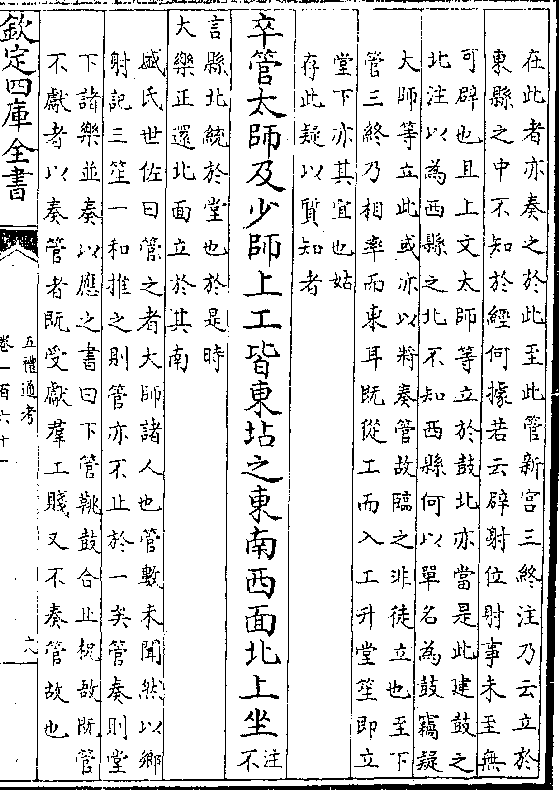 在此者亦奏之於此至此管新宮三終注乃云立於
東縣之中不知於經何據若云辟射位射事未至無
可辟也且上文太師等立於鼓北亦當是此建鼓之
北注以為西縣之北不知西縣何以單名為鼓竊疑
大師等立此或亦以將奏管故臨之非徒立也至下
管三終乃相率而東耳既從工而入工升堂笙即立
堂下亦其宜也姑
存此疑以質知者
卒管太師及少師上工皆東坫之東南西面北上坐
注不
言縣北統於堂也於是時
大樂正還北面立於其南
臧氏世佐曰管之者大師諸人也管數未聞然以鄉
射記三笙一和推之則管亦不止於一矣管奏則堂
下諸樂並奏以應之書曰下管鼗鼓合止柷敔既管
不獻者以奏管者既受獻羣工賤又不奏管故也
欽定四庫全書
五禮通考
卷一百六十一